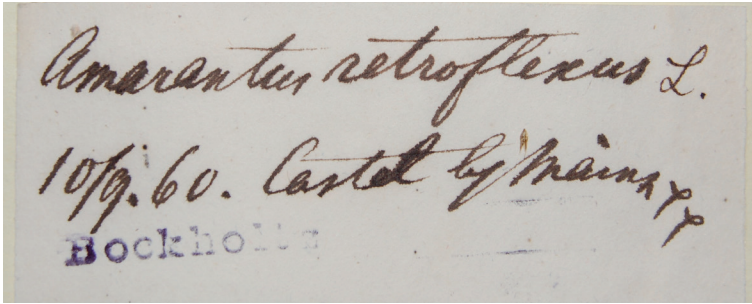 Amarantus retroflexus L.
10/9. 60. Castel by Mainz
Bockholtz